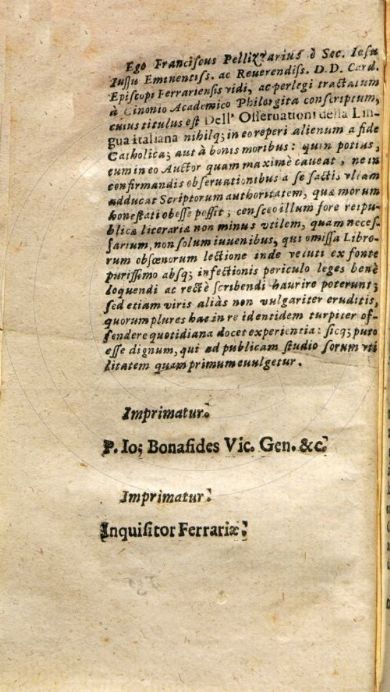 Ego Franciscus Pellizzarius è Soc. Iesu
Iussu Eminentiss. ac Reuerendiss. D.D. Card.
Episcopi Ferrariensis vidi, ac perlegi tractatum
à Cinonio Academico Philergita conscriptum,
cuius titulus est Dell' Osseruationi della Lin-
gua italiana nihilq; in eo reperi alienum a fide
Catholica; aut à bonis moribus: quin potius,
cum in eo Auctor quam maximè caueat, ne in
confirmandis obseruationibus a se factis vllam
adducat Scriptorum authoritatem, quæ morum
honestati obesse possit; censeo illum fore reipu-
blicæ literariæ non minus vtilem, quam neces-
sarium, non solum iuuenibus, qui omissa Libro-
rum obscœnorum lectione inde veluti ex fonte
purissimo absq; infectionis periculo leges benè
loquendi ac rectè scribendi haurire poterunt;
sed etiam viris aliàs non vulgariter eruditis,
quorum plures hac in re identidem turpiter of-
fendere quotidiana docet experientia: sicq; puto
esse dignum, qui ad publicam studio sorum vti
litatem quam primum euulgetur.
Imprimatur.
P. Io; Bonafides Vic. Gen. &c.
Imprimatur
Inquisitor Ferrariæ